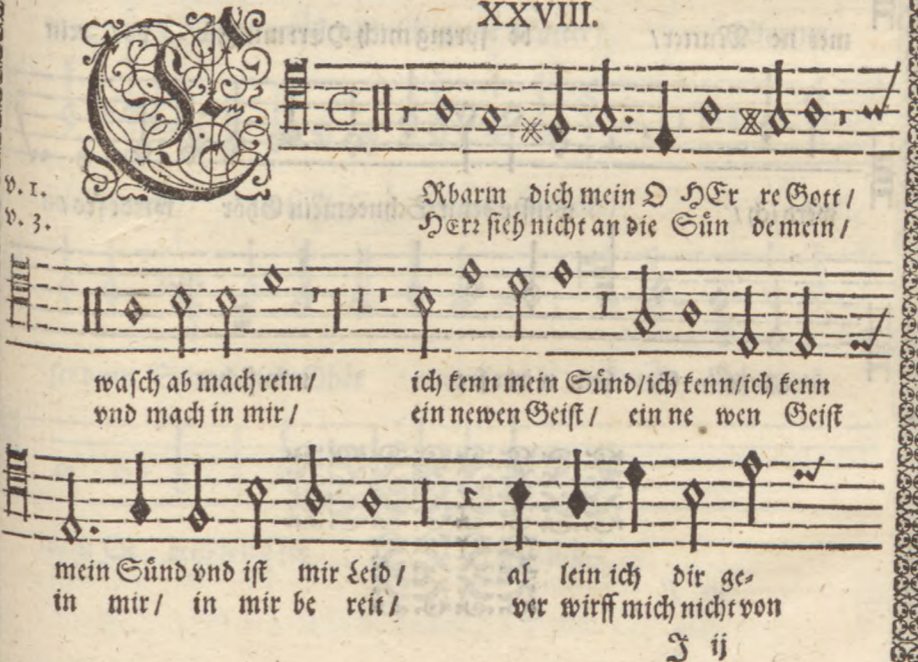 XXVIII.
v. 1. ERbarm dich mein O HErre Gott /
v. 3. Herr sieh nicht an die Sünde mein /
wasch ab mach rein / ich kenn mein Sünd/ich kenn/ich kenn
vnd mach in mir / ein newen Geist / ein newen Geist
mein Sünd vnd ist mir Leid / allein ich dir ge=
in mir / in mir bereit / ver wirff mich nicht von
J ij